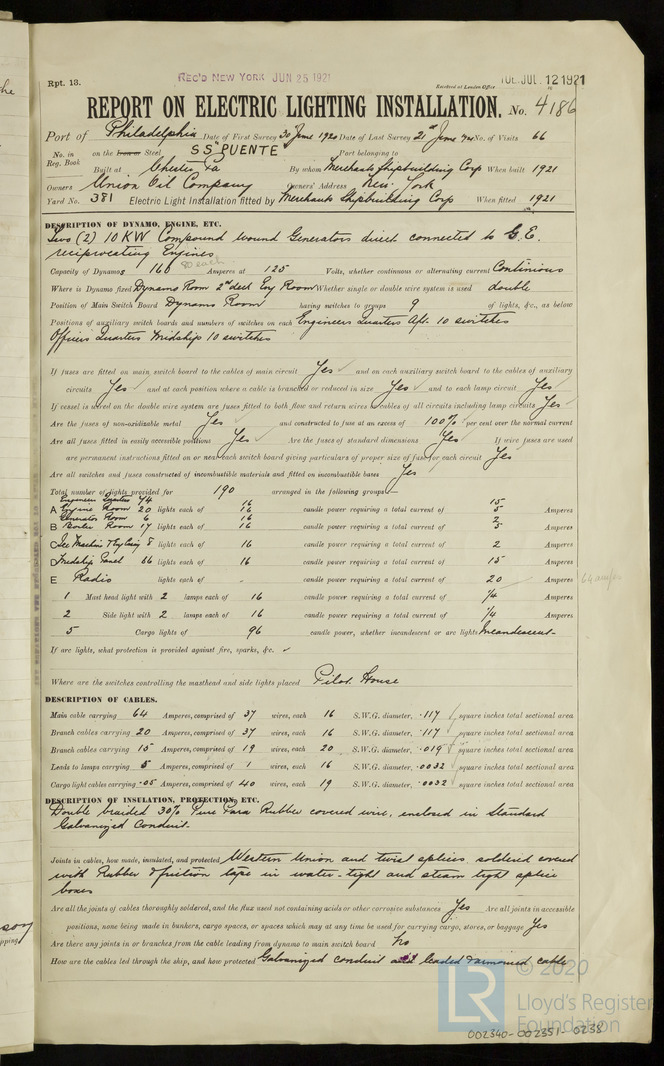 he
Rpt. 13.
REC'D NEW YORK JUN 25 1921
TUE. JUL. 12 1921
Received at London Office
REPORT ON ELECTRIC LIGHTING INSTALLATION. No. 4186
Port of Philadelphia Date of First Survey 30 June 1920 Date of Last Survey 21st June 1921 No. of Visits 66
No. in Reg. Book on the Iron or Steel SS PUENTE Port belonging to
Built at Chester Pa By whom Merchants Shipbuilding Corp When built 1921
Owners Union Oil Company Owners' Address New York
Yard No. 381 Electric Light Installation fitted by Merchants Shipbuilding Corp When fitted 1921
DESCRIPTION OF DYNAMO, ENGINE, ETC.
Two (2) 10 KW Compound wound Generators direct connected to G.E.
reciprocating Engines
80 each
Capacity of Dynamos 160 Amperes at 125 Volts, whether continuous or alternating current Continuous
Where is Dynamo fixed Dynamo Room 2nd deck Eng Room Whether single or double wire system is used double
Position of Main Switch Board Dynamo Room having switches to groups 9 of lights, &c., as below
Positions of auxiliary switch boards and numbers of switches on each Engineers Quarters Aft. 10 switches
Officers Quarters Midship 10 switches
If fuses are fitted on main switch board to the cables of main circuit Yes ✓ and on each auxiliary switch board to the cables of auxiliary
circuits Yes ✓ and at each position where a cable is branched or reduced in size Yes ✓ and to each lamp circuit Yes ✓
If vessel is wired on the double wire system are fuses fitted to both flow and return wires or cables of all circuits including lamp circuits Yes ✓
Are the fuses of non-oxidizable metal Yes ✓ and constructed to fuse at an excess of 100% per cent over the normal current
Are all fuses fitted in easily accessible positions Yes ✓ Are the fuses of standard dimensions Yes ✓ If wire fuses are used
are permanent instructions fitted on or near each switch board giving particulars of proper size of fuse for each circuit Yes
Are all switches and fuses constructed of incombustible materials and fitted on incombustible bases Yes ✓
Total number of lights provided for 190 arranged in the following groups:—
Engineers Quarters 74 16 15
A Engine Room 20 lights each of 16 candle power requiring a total current of 5 Amperes
Generator Room 6 16 2
B Boiler Room 17 lights each of 16 candle power requiring a total current of 5 Amperes
C 8 lights each of 16 candle power requiring a total current of 2 Amperes
Midship Panel 66 lights each of 16 candle power requiring a total current of 15 Amperes
E Radio lights each of - candle power requiring a total current of 20 Amperes 64 amps
1 Mast head light with 2 lamps each of 16 candle power requiring a total current of 1/4 Amperes
2 Side light with 2 lamps each of 16 candle power requiring a total current of 1/4 Amperes
5 Cargo lights of 96 candle power, whether incandescent or arc lights Incandescent
If arc lights, what protection is provided against fire, sparks, &c. ✓
Where are the switches controlling the masthead and side lights placed Pilot House
DESCRIPTION OF CABLES.
Main cable carrying 64 Amperes, comprised of 37 wires, each 16 S.W.G. diameter, .117 ✓ square inches total sectional area
Branch cables carrying 20 Amperes, comprised of 37 wires, each 16 S.W.G. diameter, .117 ✓ square inches total sectional area
Branch cables carrying 15 Amperes, comprised of 19 wires, each 20 S.W.G. diameter, .019 ✓ square inches total sectional area
Leads to lamps carrying 5 Amperes, comprised of 1 wires, each 16 S.W.G. diameter, .0032 ✓ square inches total sectional area
Cargo light cables carrying .05 Amperes, comprised of 40 wires, each 19 S.W.G. diameter, .0032 ✓ square inches total sectional area
DESCRIPTION OF INSULATION, PROTECTION, ETC.
Double braided 30% Pure Para Rubber covered wire, enclosed in Standard
Galvanized Conduit.
Joints in cables, how made, insulated, and protected Western Union and twist splices soldered covered
with Rubber & friction tape in water-tight and steam tight splice
boxes
Are all the joints of cables thoroughly soldered, and the flux used not containing acids or other corrosive substances Yes Are all joints in accessible
positions, none being made in bunkers, cargo spaces, or spaces which may at any time be used for carrying cargo, stores, or baggage Yes
Are there any joints in or branches from the cable leading from dynamo to main switch board No
How are the cables led through the ship, and how protected Galvanized conduit and leaded & armoured cable
LR
© 2020
Lloyd's Register
Foundation
002340-002351-0238